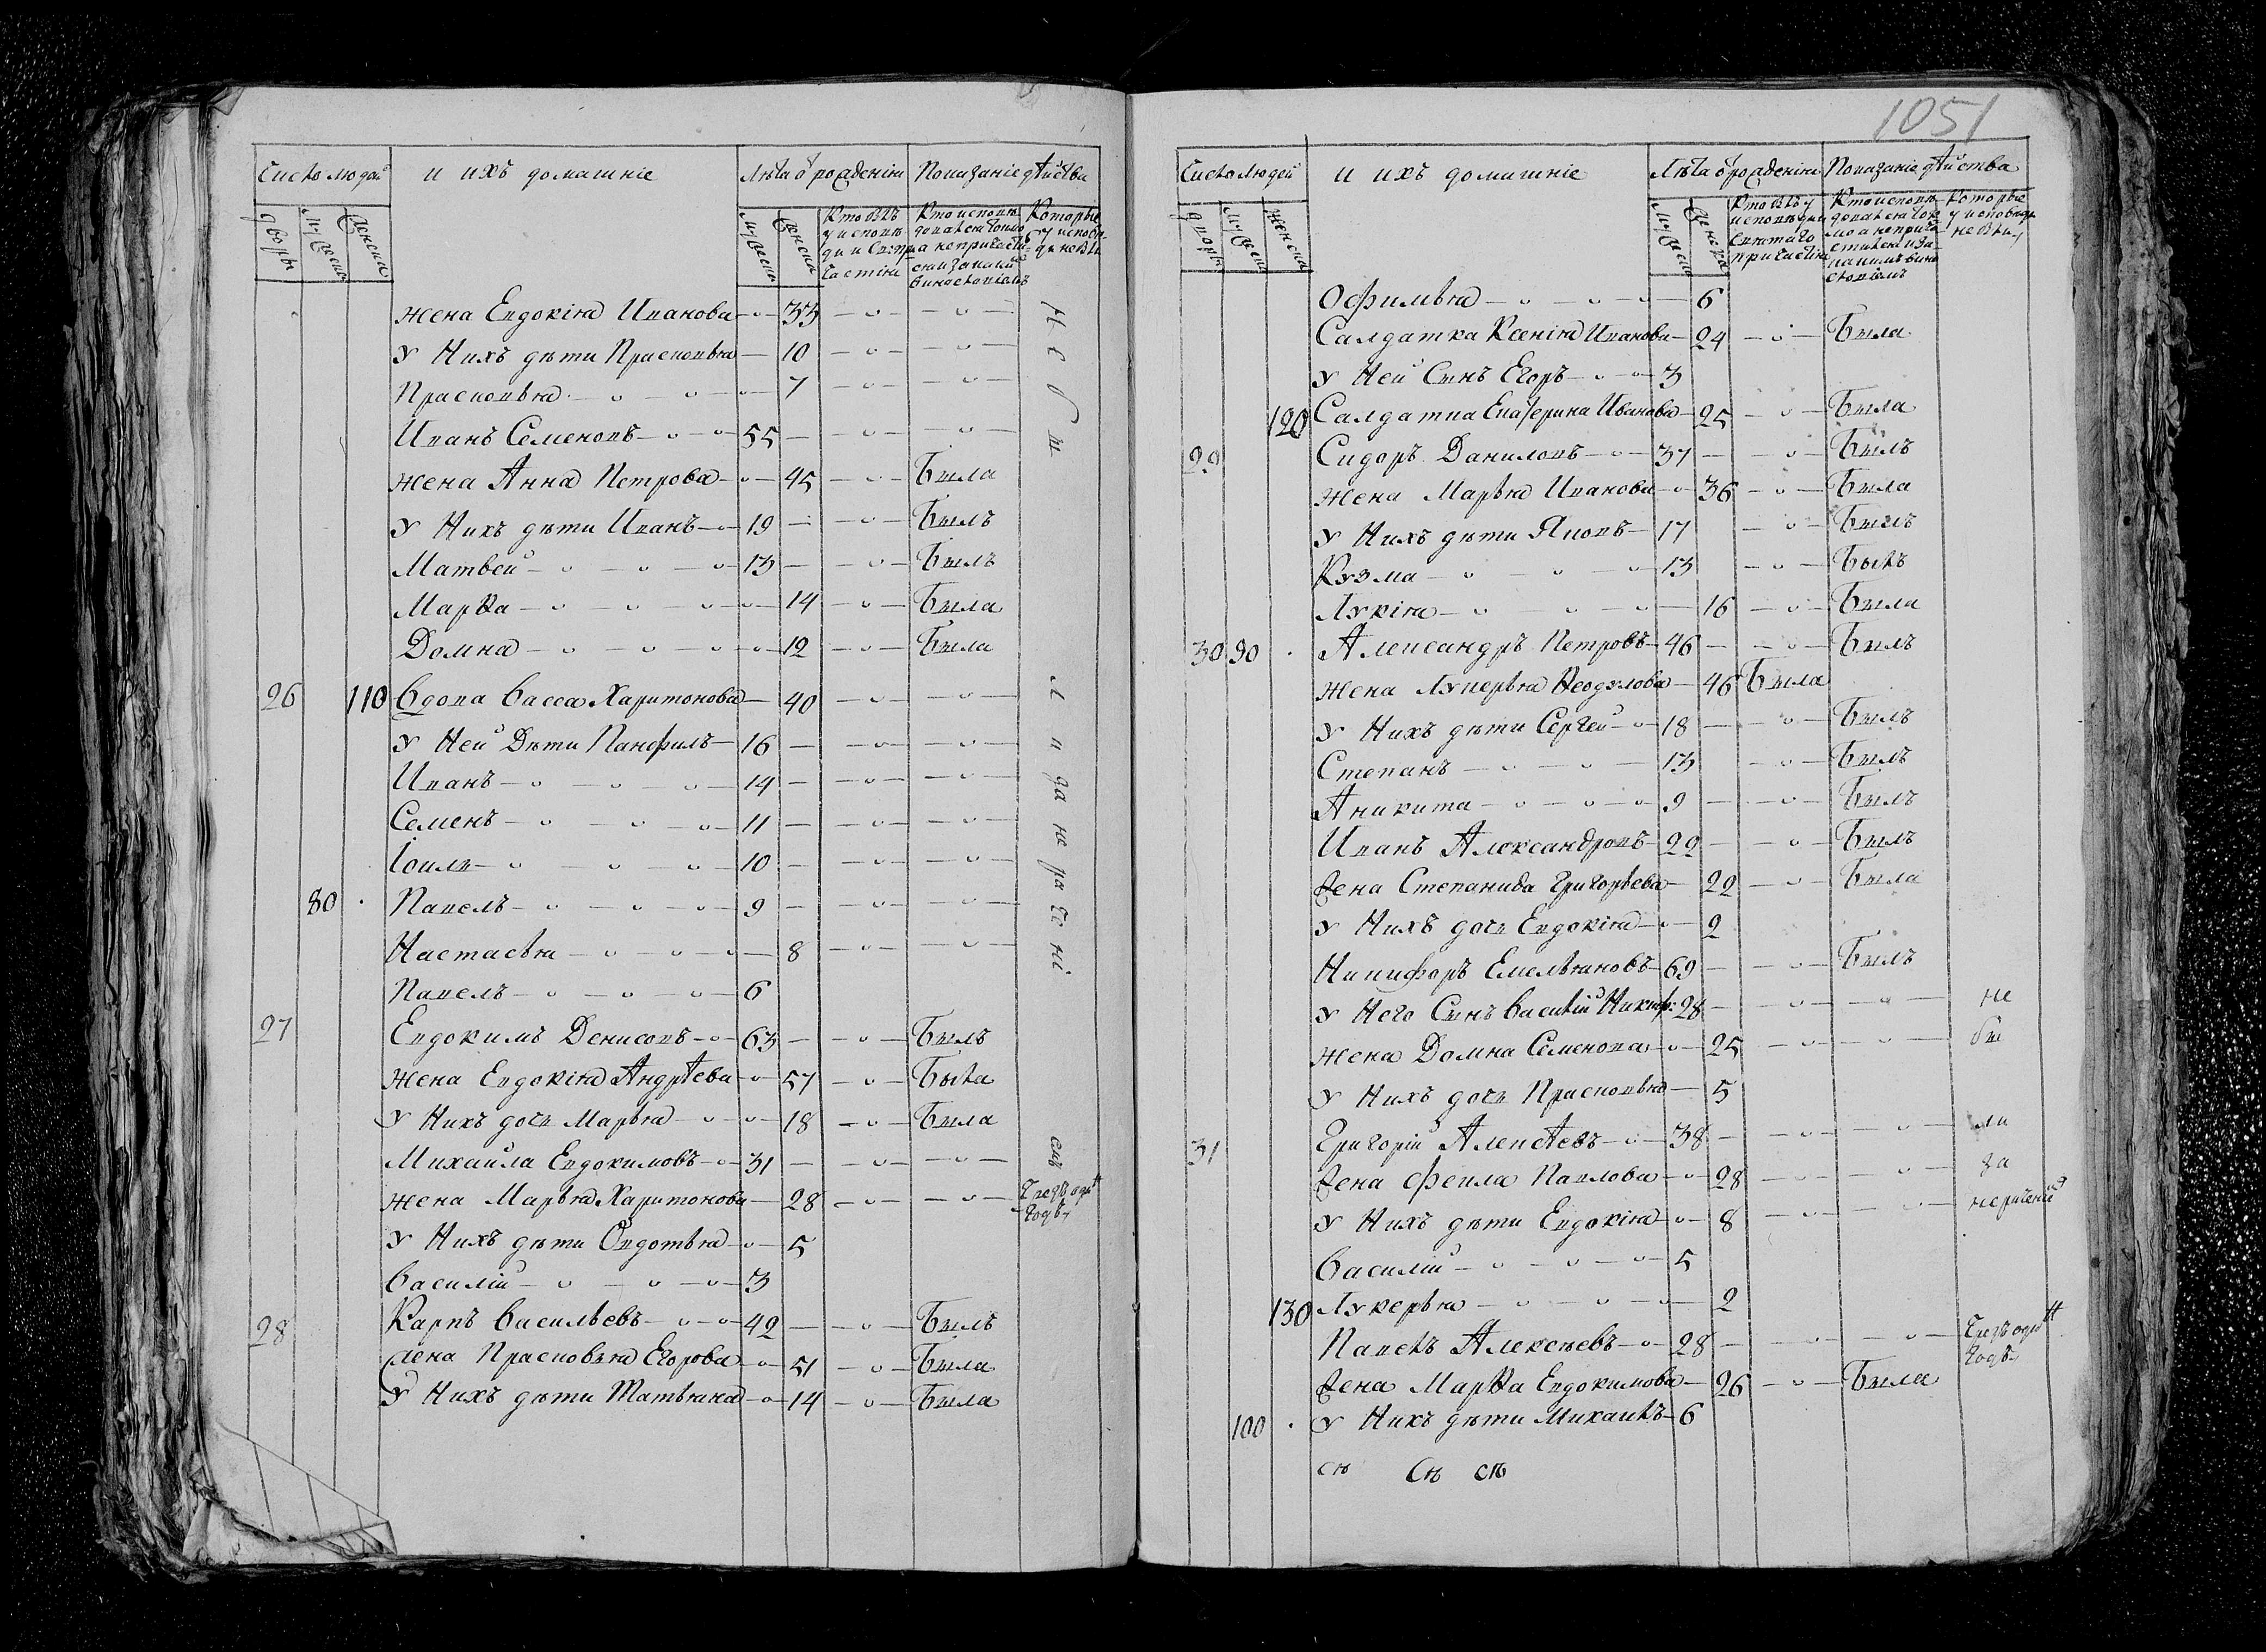 Число людей и ихъ домашніе Лѣта ѿ рожденіи Показаніе дѣйства
дворы мужеска женска мужеска женска
Кто былъ у исповѣди и Св: причастіи
Кто исповѣдовался токмо а не причастился и за какимъ винословіемъ
Которые у исповѣди не были
жена Евдокіа Иванова 33
У Нихъ дѣти Прасковьа 10
Прасковьа 7
Иванъ Семеновъ 55
жена Анна Петрова 45 Была
У Нихъ дѣти Иванъ 19 Былъ
Матвей 13 Былъ
Марѳа 14 Была
Домна 12 Была
26 110 Вдова Васса Харитонова 40
У Ней Дѣти Панфилъ 16
Иванъ 14
Семенъ 11
Іоиль 10
80 Павелъ 9
Настасьа 8
Павелъ 6
27 Евдокимъ Денисовъ 63 Былъ
жена Евдокіа Андрѣева 57 Была
У Нихъ дочь Марьа 18 Была
Михаила Евдокимовъ 31
жена Марьа Харитонова 28
У Нихъ дѣти Овдотьа 5
Василій 3
28 Карпъ Васильевъ 42 Былъ
жена Прасковьа Егорова 51 Была
У Нихъ дѣти Татьяна 14 Была
Не бы
ли за нерачені
емъ
Чрезъ одинъ годъ
1051
Число людей и ихъ домашніе Лѣта ѿ рожденіи Показаніе дѣйства
дворы мужеска женска мужеска женска
Кто былъ у исповѣди и святаго причастіа
Кто исповѣдовался токмо а не причастился и за какимъ винословіемъ
Которые у исповѣди не были
Офимьа 6
Салдатка Ксеніа Иванова 24 Была
У Ней Сынъ Егоръ 3
120 Салдатка Екатерина Иванова 25 Была
29 Сидоръ Даниловъ 37 Былъ
жена Марьа Иванова 36 Была
У Нихъ дѣти Яковъ 17 Былъ
Кузма 13 Былъ
Лукіа 16 Была
30 90 Александръ Петровъ 46 Былъ
жена Лукерьа Ѳеодулова 46 Была
У Нихъ дѣти Сергей 18 Былъ
Степанъ 13 Былъ
Аникита 9 Былъ
Иванъ Александровъ 22 Былъ
жена Степанида Григорьева 22 Была
У Нихъ дочь Евдокіа 2
Никифоръ Емельяновъ 69 Былъ
У Него Сынъ Василій Никиф: 28 не
жена Домна Семенова 25 бы
У Нихъ дочь Прасковьа 5
31 Григорій Алексѣевъ 38 ли
жена Фекла Павлова 28 за
У Нихъ дѣти Евдокіа 8 нераченіе
Василій 5
130 Лукерьа 2
Павелъ Алексѣевъ 28 Чрезъ одинъ годъ
жена Марѳа Евдокимова 26 Была
100 У Нихъ дѣти Михаилъ 6
сѣ Сѣ сѣ